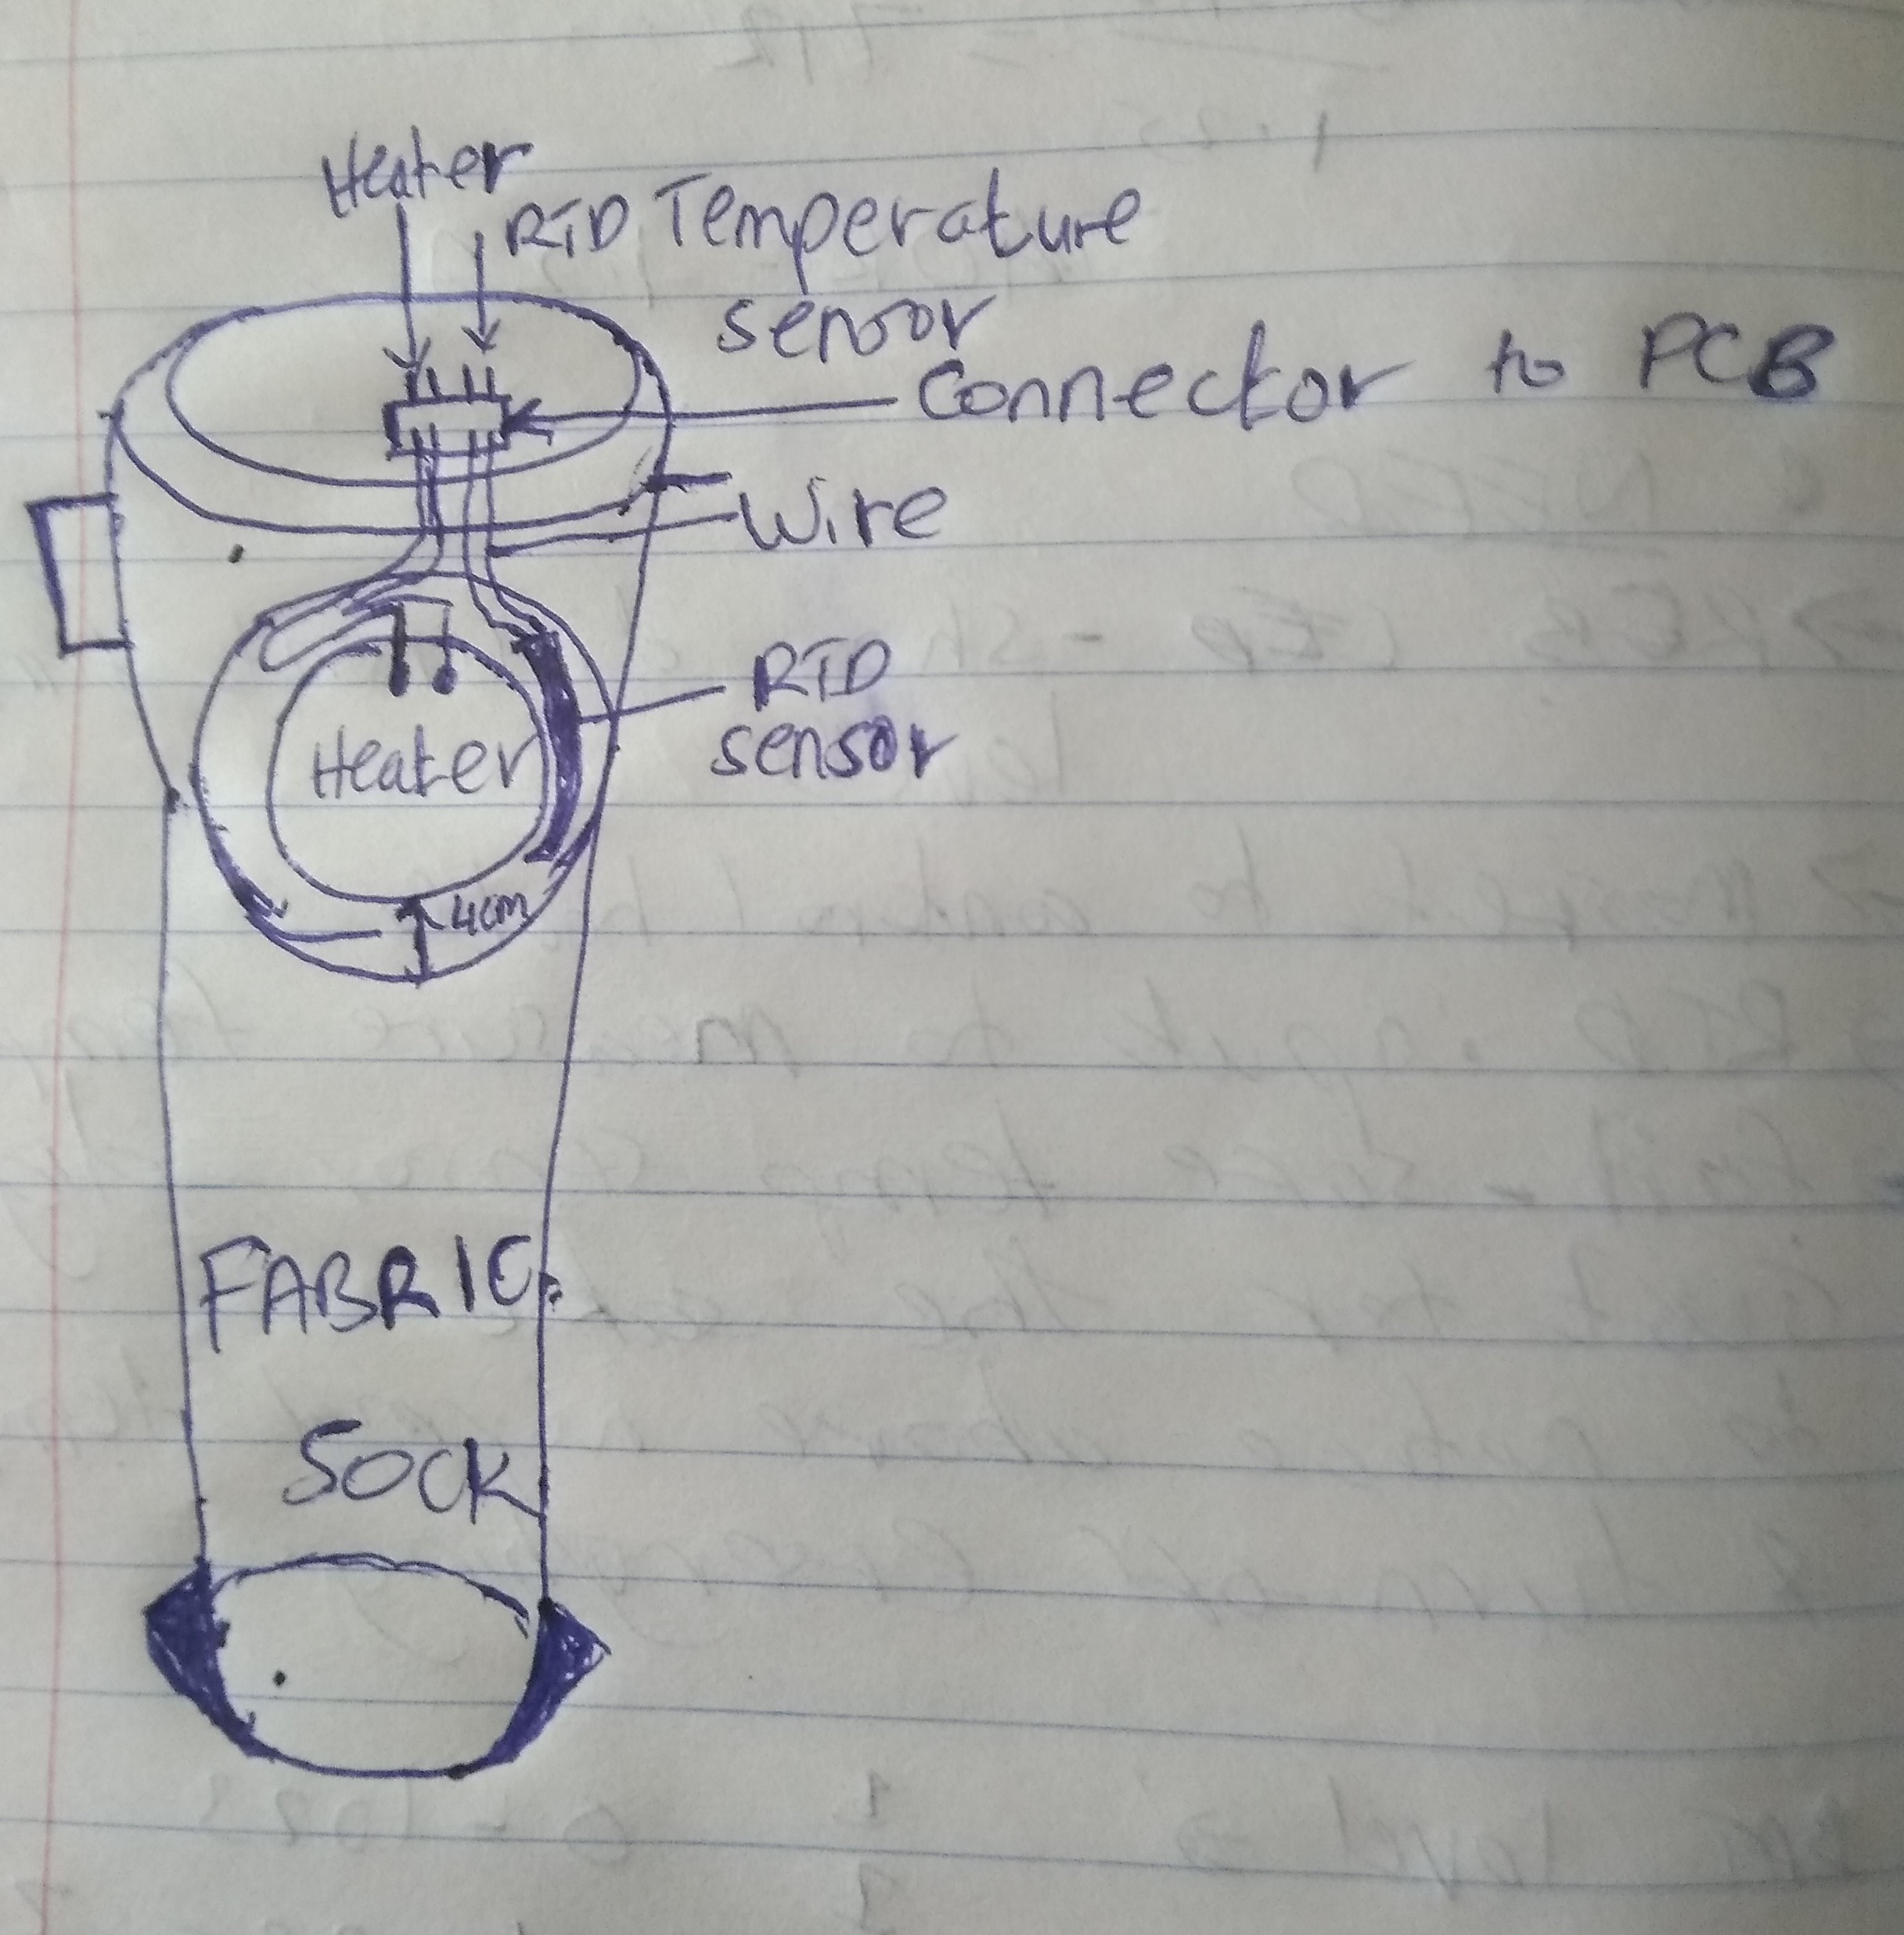 Heater
RTD Temperature
sensor
Connector to PCB
Wire
RTD
sensor
Heater
4cm
FABRIC
SOCK